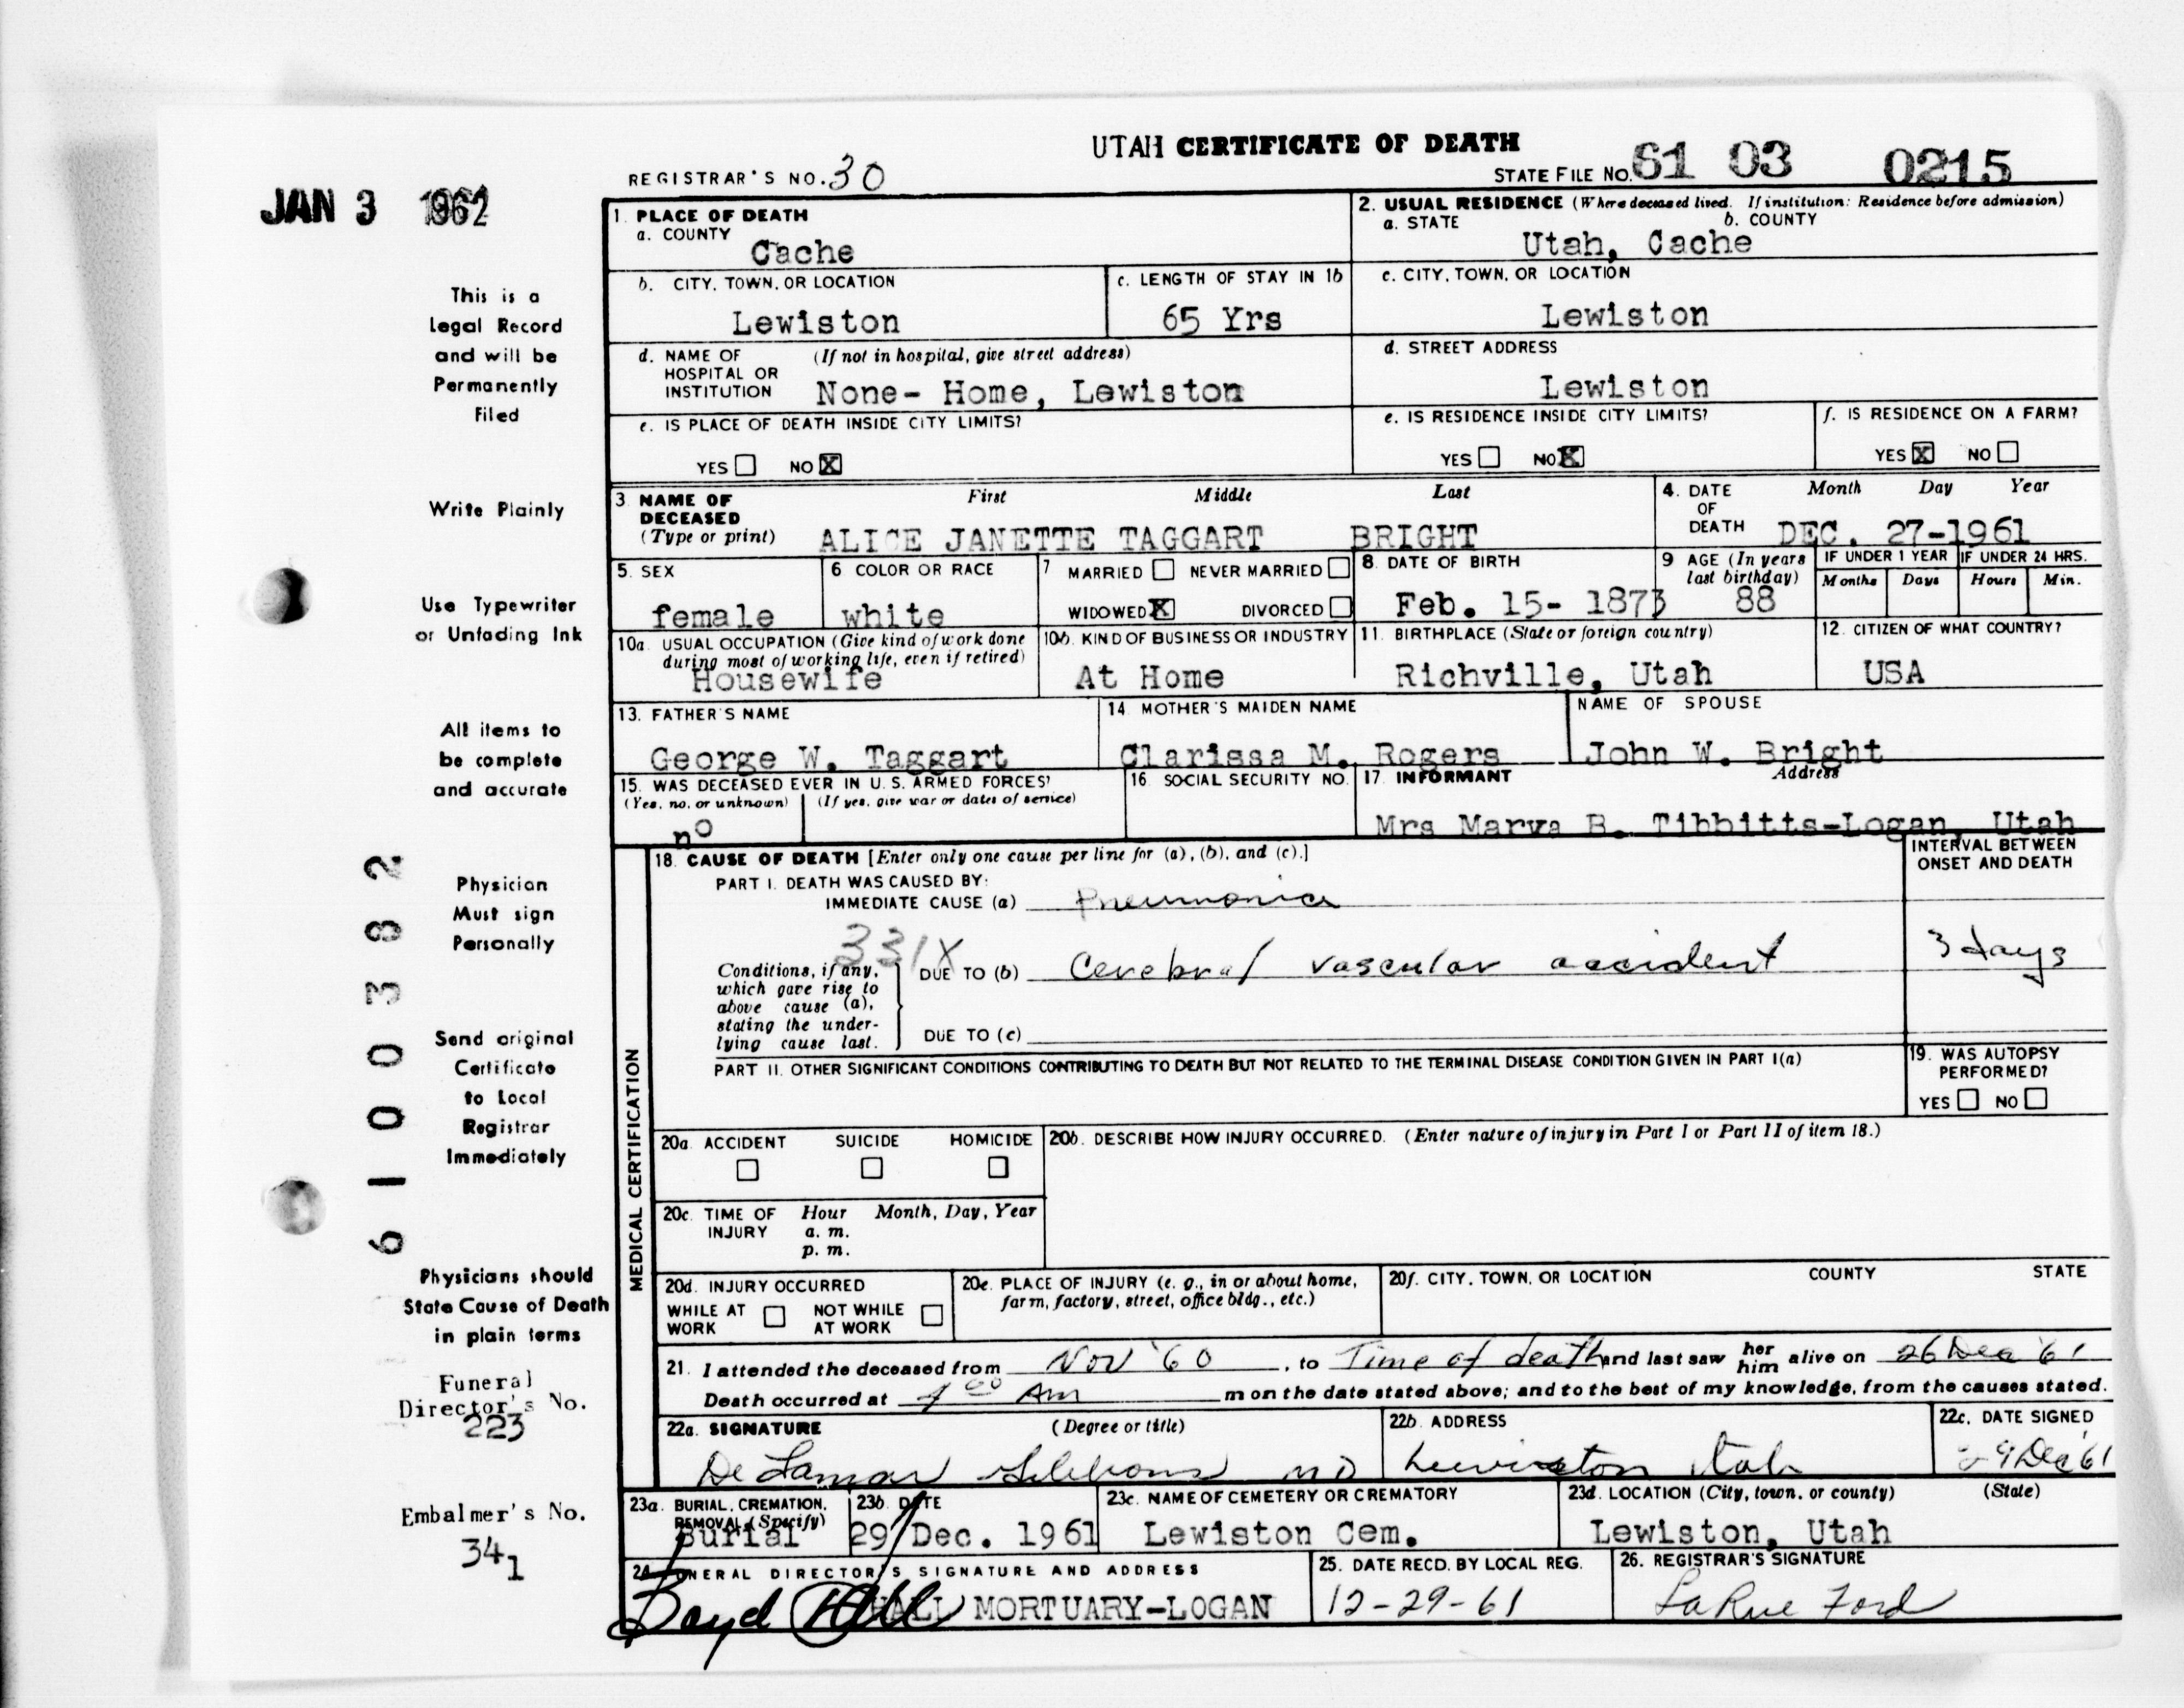 UTAH CERTIFICATE OF DEATH
REGISTRAR'S NO. 30
STATE FILE NO. 61 03 0215
JAN 3 1962
1. PLACE OF DEATH
a. COUNTY
Cache
2. USUAL RESIDENCE (Where deceased lived. If institution: Residence before admission)
a. STATE b. COUNTY
Utah, Cache
b. CITY, TOWN, OR LOCATION
Lewiston
c. LENGTH OF STAY IN 1b
65 Yrs
c. CITY, TOWN, OR LOCATION
Lewiston
d. NAME OF HOSPITAL OR INSTITUTION (If not in hospital, give street address)
None- Home, Lewiston
d. STREET ADDRESS
Lewiston
e. IS PLACE OF DEATH INSIDE CITY LIMITS?
YES NO X
e. IS RESIDENCE INSIDE CITY LIMITS?
YES NO X
f. IS RESIDENCE ON A FARM?
YES X NO
3 NAME OF DECEASED (Type or print)
First Middle Last
ALICE JANETTE TAGGART BRIGHT
4. DATE OF DEATH
Month Day Year
DEC. 27-1961
5. SEX
female
6 COLOR OR RACE
white
7 MARRIED NEVER MARRIED
WIDOWED X DIVORCED
8. DATE OF BIRTH
Feb. 15- 1873
9 AGE (In years last birthday)
88
IF UNDER 1 YEAR IF UNDER 24 HRS.
Months Days Hours Min.
10a. USUAL OCCUPATION (Give kind of work done during most of working life, even if retired)
Housewife
10b. KIND OF BUSINESS OR INDUSTRY
At Home
11. BIRTHPLACE (State or foreign country)
Richville, Utah
12. CITIZEN OF WHAT COUNTRY?
USA
13. FATHER'S NAME
George W. Taggart
14. MOTHER'S MAIDEN NAME
Clarissa M. Rogers
NAME OF SPOUSE
John W. Bright
15. WAS DECEASED EVER IN U.S. ARMED FORCES?
(Yes, no, or unknown) (If yes, give war or dates of service)
no
16. SOCIAL SECURITY NO.
17. INFORMANT Address
Mrs Marva B. Tibbitts-Logan, Utah
18. CAUSE OF DEATH [Enter only one cause per line for (a), (b), and (c).]
INTERVAL BETWEEN ONSET AND DEATH
PART I. DEATH WAS CAUSED BY:
IMMEDIATE CAUSE (a) Pneumonia
331X
Conditions, if any, which gave rise to above cause (a), stating the underlying cause last.
DUE TO (b) Cerebral vascular accident
3 days
DUE TO (c)
PART II. OTHER SIGNIFICANT CONDITIONS CONTRIBUTING TO DEATH BUT NOT RELATED TO THE TERMINAL DISEASE CONDITION GIVEN IN PART I(a)
19. WAS AUTOPSY PERFORMED?
YES NO
MEDICAL CERTIFICATION
20a. ACCIDENT SUICIDE HOMICIDE
20b. DESCRIBE HOW INJURY OCCURRED. (Enter nature of injury in Part I or Part II of item 18.)
20c. TIME OF INJURY Hour Month, Day, Year
a. m.
p. m.
20d. INJURY OCCURRED
WHILE AT WORK NOT WHILE AT WORK
20e. PLACE OF INJURY (e. g., in or about home, farm, factory, street, office bldg., etc.)
20f. CITY, TOWN, OR LOCATION COUNTY STATE
21. I attended the deceased from Nov '60, to Time of death and last saw her him alive on 26 Dec '61
Death occurred at 4 00 Am m on the date stated above; and to the best of my knowledge, from the causes stated.
22a. SIGNATURE (Degree or title)
De Lamar Gibbons MD
22b. ADDRESS
Lewiston Utah
22c. DATE SIGNED
29 Dec '61
23a. BURIAL, CREMATION, REMOVAL (Specify)
Burial
23b. DATE
29 Dec. 1961
23c. NAME OF CEMETERY OR CREMATORY
Lewiston Cem.
23d. LOCATION (City, town, or county) (State)
Lewiston, Utah
24. FUNERAL DIRECTOR'S SIGNATURE AND ADDRESS
Boyd Hall HALL MORTUARY-LOGAN
25. DATE RECD. BY LOCAL REG.
12-29-61
26. REGISTRAR'S SIGNATURE
LaRue Ford
This is a
Legal Record
and will be
Permanently
Filed
Write Plainly
Use Typewriter
or Unfading Ink
All items to
be complete
and accurate
Physician
Must sign
Personally
Send original
Certificate
to Local
Registrar
Immediately
Physicians should
State Cause of Death
in plain terms
Funeral
Director's No.
223
Embalmer's No.
341
61 00 3 382